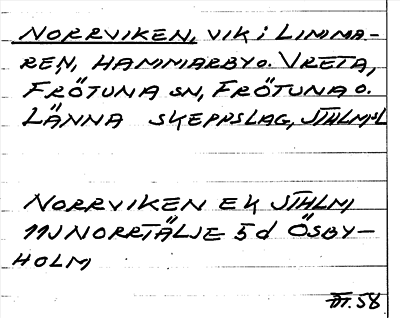 NORRVIKEN, VIK i LIMMA-
REN, HAMMARBY o. VRETA,
FRÖTUNA SN, FRÖTUNA O.
LÄNNA SKEPPSLAG, STHLMSL
NORRVIKEN EK STHLM
11J NORRTÄLJE 5d ÖSBY-
HOLM
58